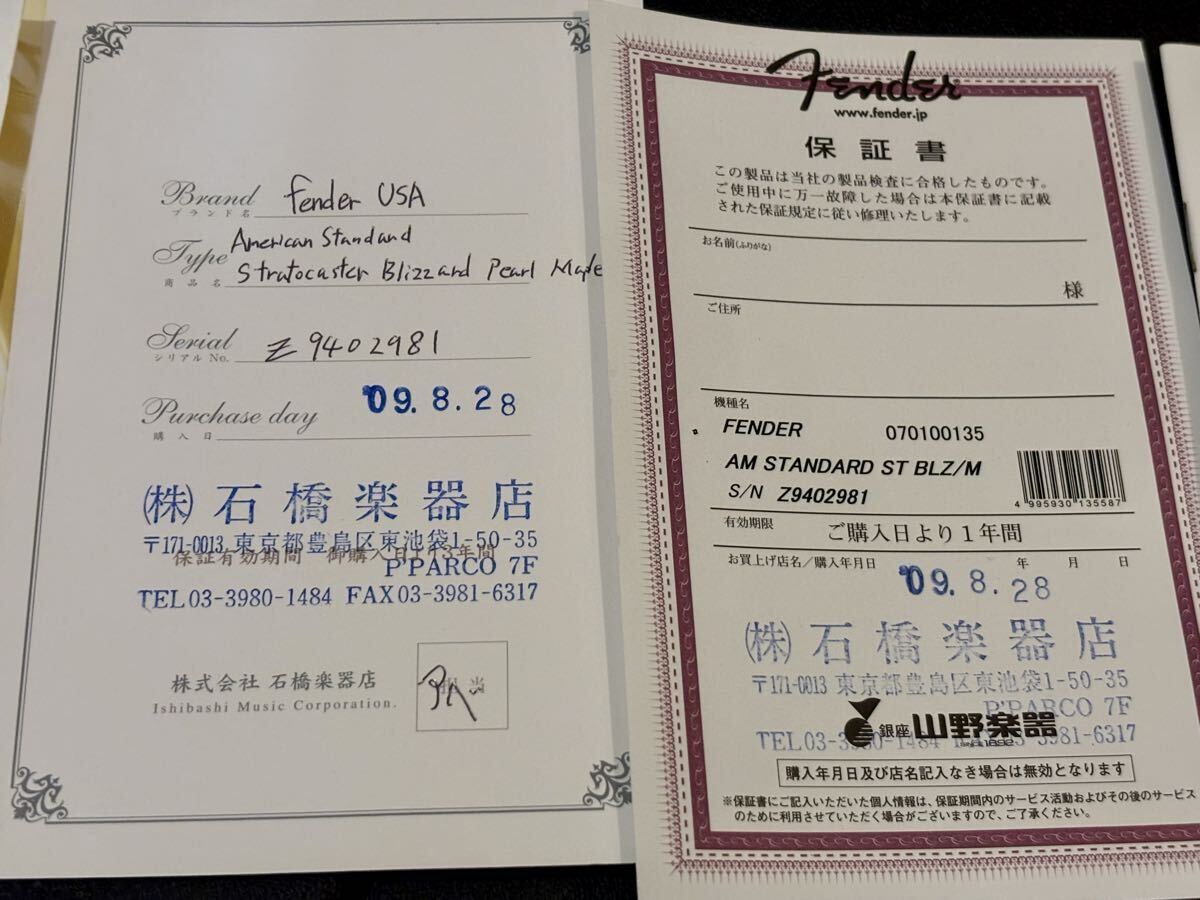 Brand
ブランド名
Fender USA
Type
商品名
American Standard
Stratocaster Blizzard Pearl Maple
Serial
シリアル No.
Z9402981
Purchase day
購入日
'09.8.28
(株) 石橋楽器店
〒171-0013 東京都豊島区東池袋1-50-35
保証有効期間 御購入日より3年間
P'PARCO 7F
TEL 03-3980-1484 FAX 03-3981-6317
株式会社 石橋楽器店
Ishibashi Music Corporation.
担当
Fender
www.fender.jp
保証書
この製品は当社の製品検査に合格したものです。
ご使用中に万一故障した場合は本保証書に記載
された保証規定に従い修理いたします。
お名前(ふりがな)
様
ご住所
機種名
FENDER 070100135
AM STANDARD ST BLZ/M
S/N Z9402981
4 995930 135587
有効期限 ご購入日より1年間
お買上げ店名/購入年月日 年 月 日
'09.8.28
(株) 石橋楽器店
〒171-0013 東京都豊島区東池袋1-50-35
P'PARCO 7F
銀座 山野楽器
SINCE 1892
TEL 03-3980-1484 FAX 03-3981-6317
購入年月日及び店名記入なき場合は無効となります
※保証書にご記入いただいた個人情報は、保証期間内のサービス活動およびその後のサービス
のために利用させていただく場合がございますので、ご了承ください。